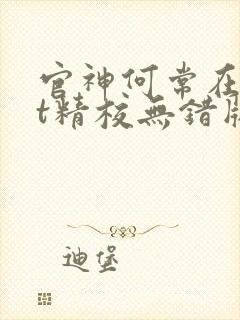 官神何常在
t精校無錯版
迪堡